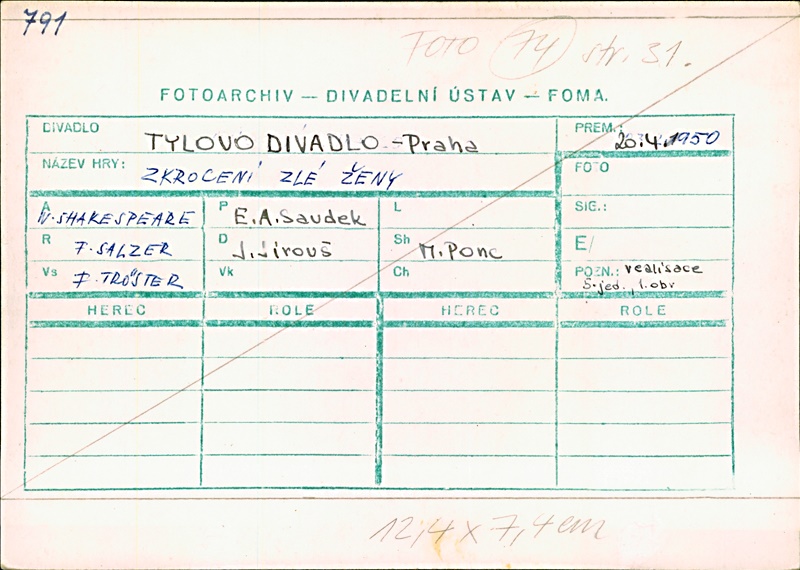 791
FOTO 74 str. 31.
FOTOARCHIV — DIVADELNÍ ÚSTAV — FOMA.
DIVADLO TYLOVO DIVADLO - Praha PREM.: 26.4.1950
NÁZEV HRY: ZKROCENÍ ZLÉ ŽENY FOTO
A W. SHAKESPEARE P E.A. Saudek L SIG.:
R F. SALZER D J. Jirouš Sh M. Ponc E/
Vs F. TRÖSTER Vk Ch POZN.: realisace
5. jed., 1. obr
HEREC ROLE HEREC ROLE
12,4 x 7,4 cm